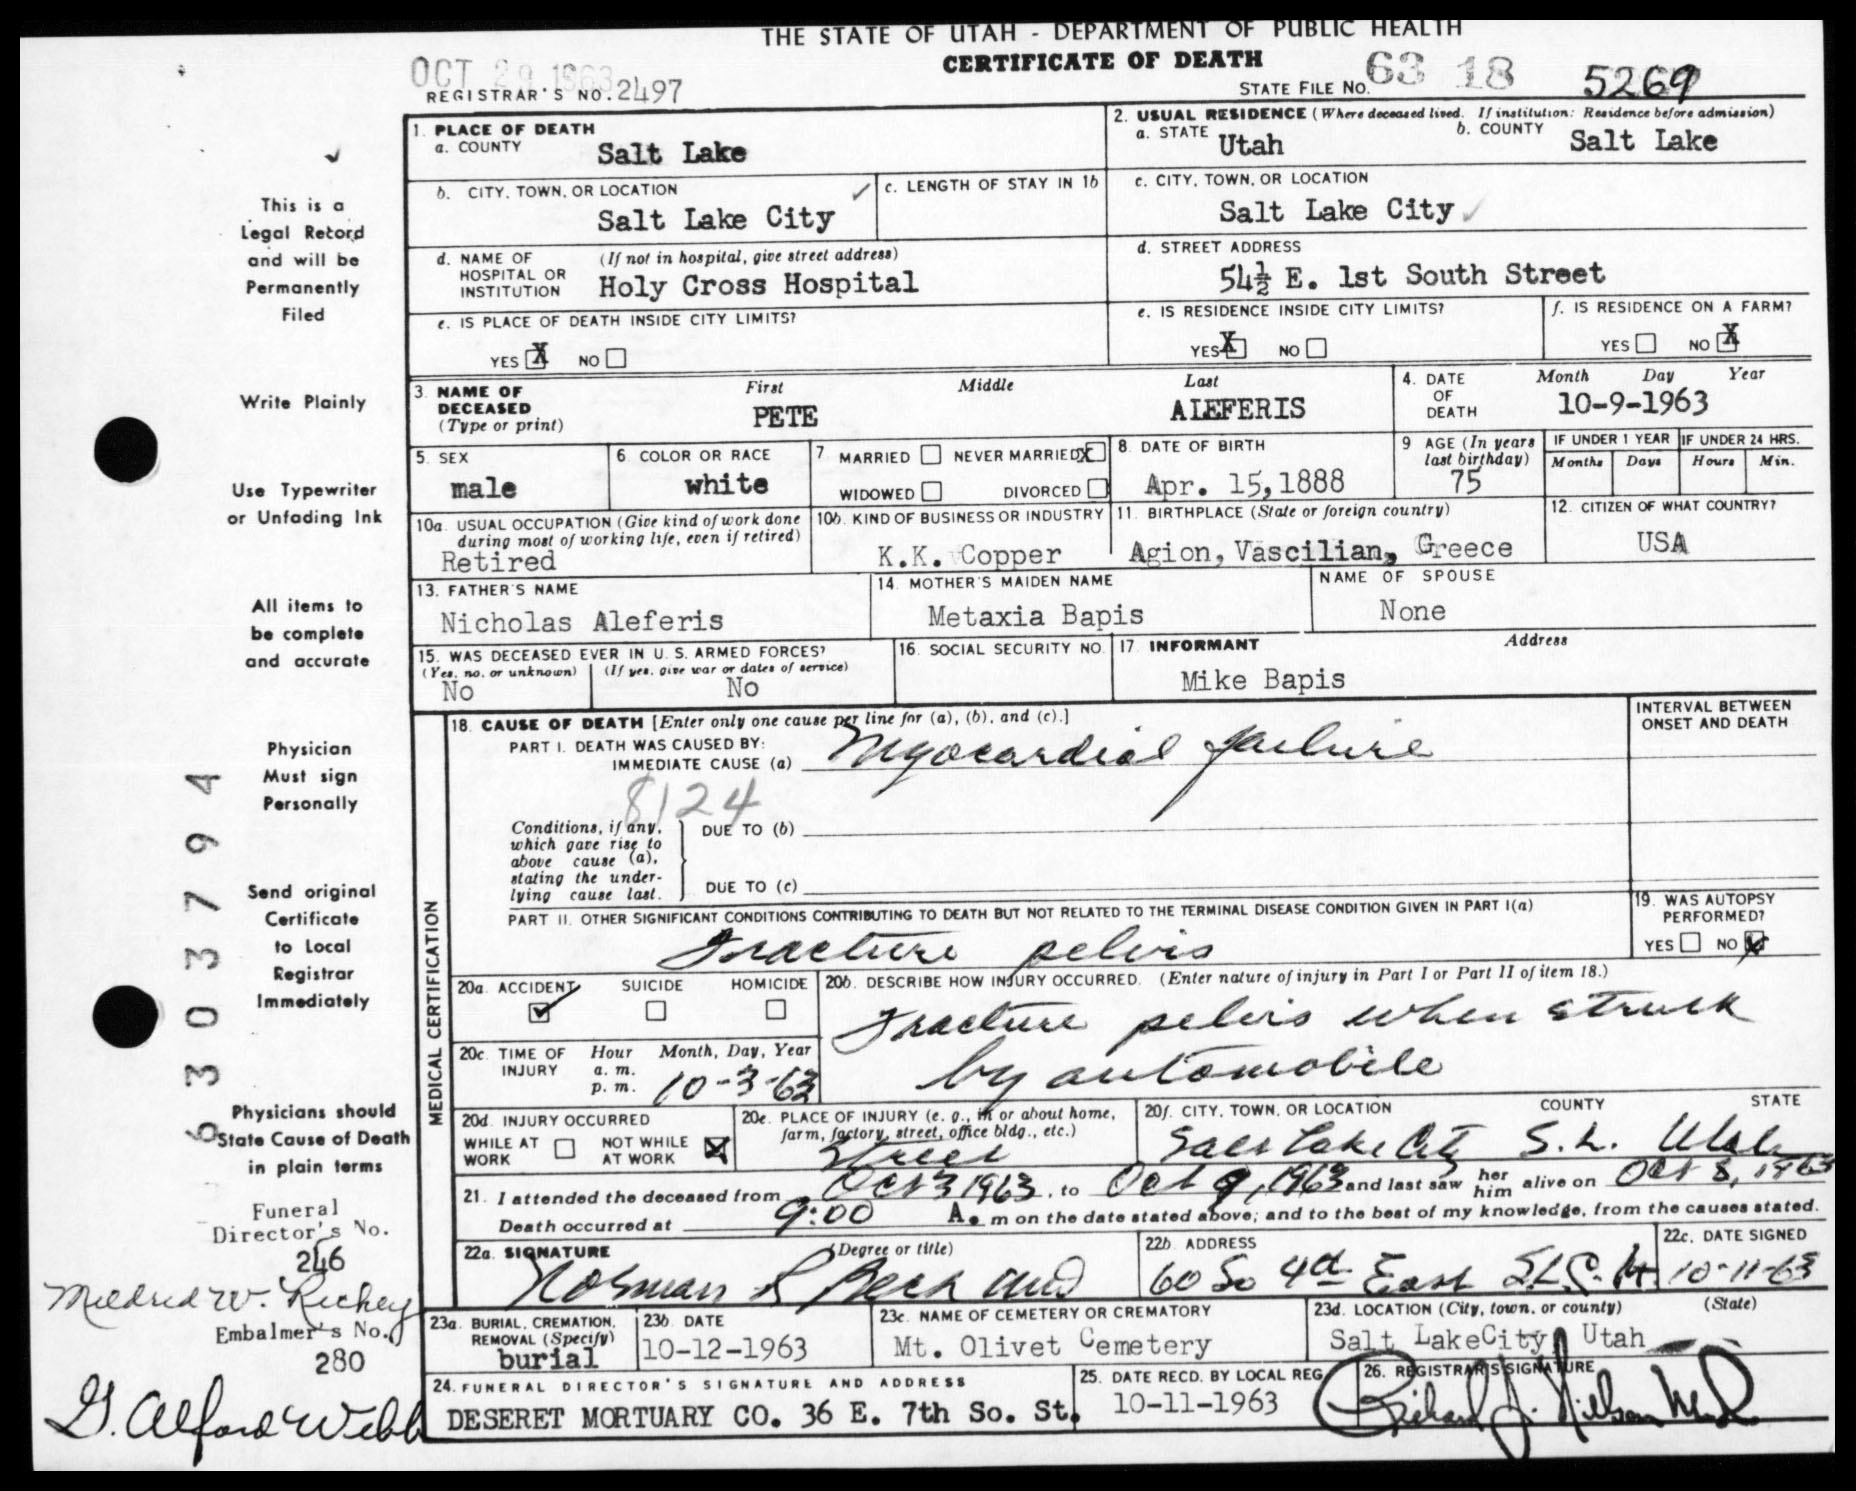 THE STATE OF UTAH - DEPARTMENT OF PUBLIC HEALTH
CERTIFICATE OF DEATH
OCT 29 1963
REGISTRAR'S NO. 2497
STATE FILE NO. 63 18 5269
1. PLACE OF DEATH
a. COUNTY Salt Lake
2. USUAL RESIDENCE (Where deceased lived. If institution: Residence before admission)
a. STATE Utah b. COUNTY Salt Lake
b. CITY, TOWN, OR LOCATION Salt Lake City
c. LENGTH OF STAY IN 1b
c. CITY, TOWN, OR LOCATION Salt Lake City
d. NAME OF HOSPITAL OR INSTITUTION (If not in hospital, give street address)
Holy Cross Hospital
d. STREET ADDRESS
54½ E. 1st South Street
e. IS PLACE OF DEATH INSIDE CITY LIMITS?
YES X NO
e. IS RESIDENCE INSIDE CITY LIMITS?
YES X NO
f. IS RESIDENCE ON A FARM?
YES NO X
3. NAME OF DECEASED (Type or print)
First Middle Last
PETE ALEFERIS
4. DATE OF DEATH Month Day Year
10-9-1963
5. SEX
male
6. COLOR OR RACE
white
7. MARRIED NEVER MARRIED X
WIDOWED DIVORCED
8. DATE OF BIRTH
Apr. 15,1888
9 AGE (In years last birthday)
75
IF UNDER 1 YEAR IF UNDER 24 HRS.
Months Days Hours Min.
10a. USUAL OCCUPATION (Give kind of work done during most of working life, even if retired)
Retired
10b. KIND OF BUSINESS OR INDUSTRY
K.K. Copper
11. BIRTHPLACE (State or foreign country)
Agion, Vascilian, Greece
12. CITIZEN OF WHAT COUNTRY?
USA
13. FATHER'S NAME
Nicholas Aleferis
14. MOTHER'S MAIDEN NAME
Metaxia Bapis
NAME OF SPOUSE
None
15. WAS DECEASED EVER IN U. S. ARMED FORCES?
(Yes, no, or unknown) (If yes, give war or dates of service)
No No
16. SOCIAL SECURITY NO.
17. INFORMANT Address
Mike Bapis
MEDICAL CERTIFICATION
18. CAUSE OF DEATH [Enter only one cause per line for (a), (b), and (c).]
INTERVAL BETWEEN ONSET AND DEATH
PART I. DEATH WAS CAUSED BY:
IMMEDIATE CAUSE (a) Myocardial failure
8124
Conditions, if any, which gave rise to above cause (a), stating the underlying cause last.
DUE TO (b)
DUE TO (c)
PART II. OTHER SIGNIFICANT CONDITIONS CONTRIBUTING TO DEATH BUT NOT RELATED TO THE TERMINAL DISEASE CONDITION GIVEN IN PART I(a)
Fracture pelvis
19. WAS AUTOPSY PERFORMED?
YES NO X
20a. ACCIDENT ✓ SUICIDE HOMICIDE
20b. DESCRIBE HOW INJURY OCCURRED. (Enter nature of injury in Part I or Part II of item 18.)
Fracture pelvis when struck
by automobile
20c. TIME OF INJURY Hour a. m. p. m. Month, Day, Year
10-3-63
20d. INJURY OCCURRED
WHILE AT WORK NOT WHILE AT WORK X
20e. PLACE OF INJURY (e. g., in or about home, farm, factory, street, office bldg., etc.)
Street
20f. CITY, TOWN, OR LOCATION COUNTY STATE
Salt Lake City S.L. Utah
21. I attended the deceased from Oct 3 1963, to Oct 9, 1963 and last saw her him alive on Oct 8, 1963
Death occurred at 9:00 A. m on the date stated above; and to the best of my knowledge, from the causes stated.
22a. SIGNATURE (Degree or title)
Norman R Beck MD
22b ADDRESS
60 So 4th East S.L.C. U.
22c. DATE SIGNED
10-11-63
23a. BURIAL, CREMATION, REMOVAL (Specify)
burial
23b. DATE
10-12-1963
23c. NAME OF CEMETERY OR CREMATORY
Mt. Olivet Cemetery
23d. LOCATION (City, town, or county) (State)
Salt LakeCity, Utah
24. FUNERAL DIRECTOR'S SIGNATURE AND ADDRESS
DESERET MORTUARY CO. 36 E. 7th So. St.
25. DATE RECD. BY LOCAL REG.
10-11-1963
26. REGISTRAR'S SIGNATURE
Richard J. Nielson M.D.
This is a
Legal Record
and will be
Permanently
Filed
Write Plainly
Use Typewriter
or Unfading Ink
All items to
be complete
and accurate
Physician
Must sign
Personally
Send original
Certificate
to Local
Registrar
Immediately
Physicians should
State Cause of Death
in plain terms
Funeral
Director's No.
246
Mildred W. Richey
Embalmer's No.
280
G. Alford Webb
6303794